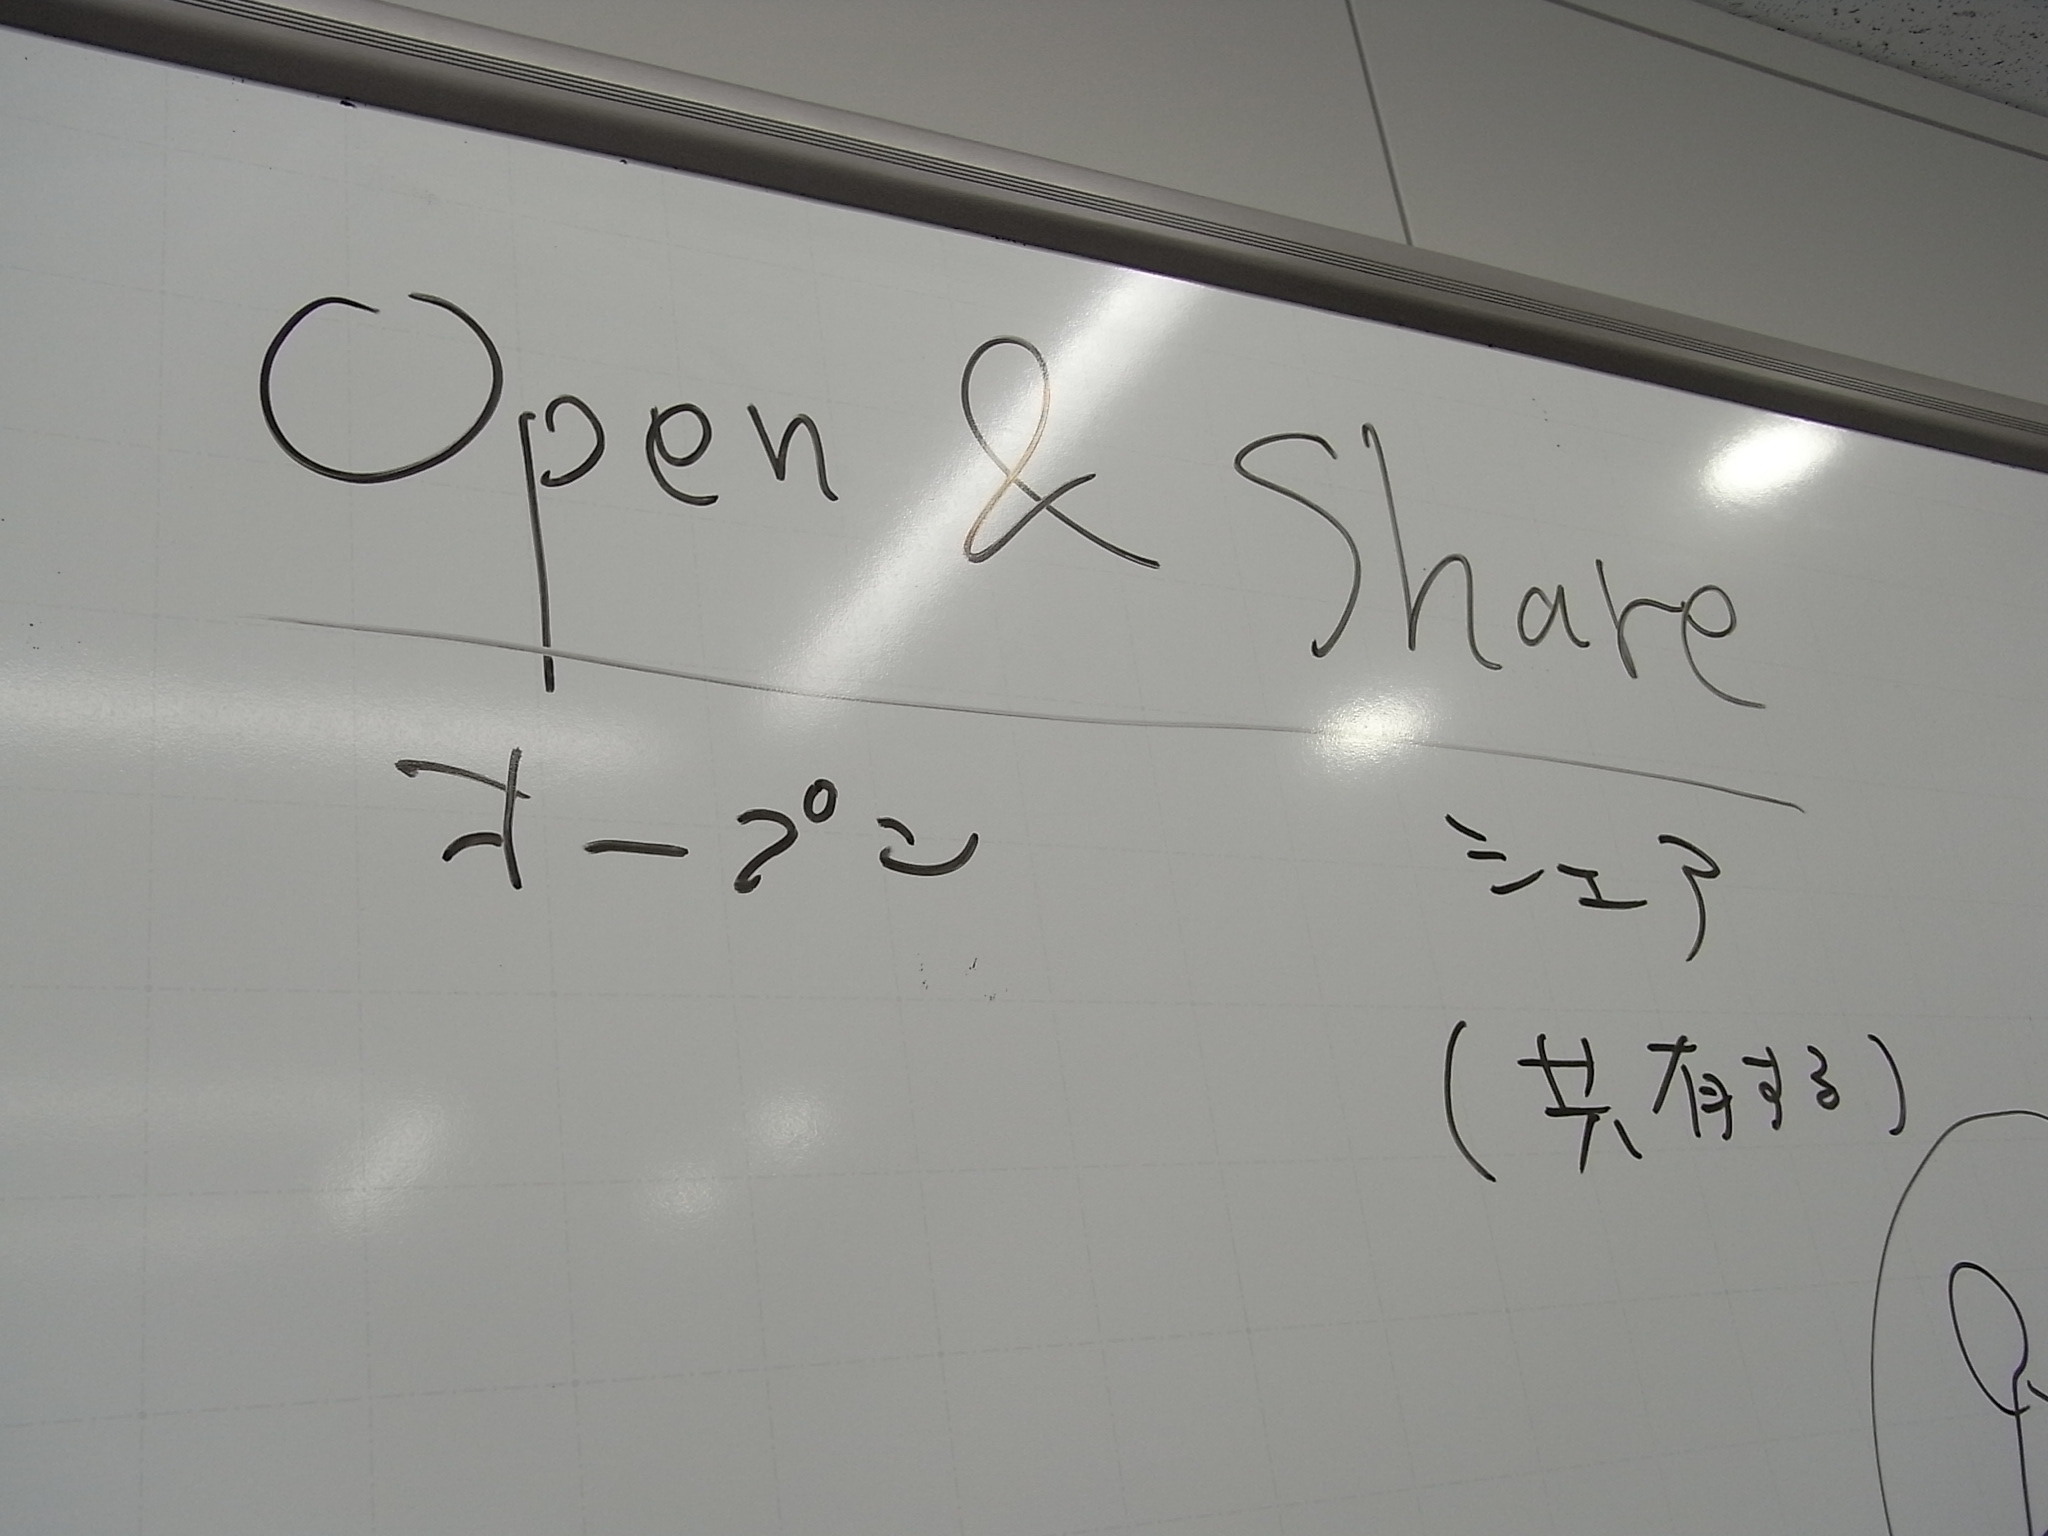 Open & Share
オープン シェア
(共有する)